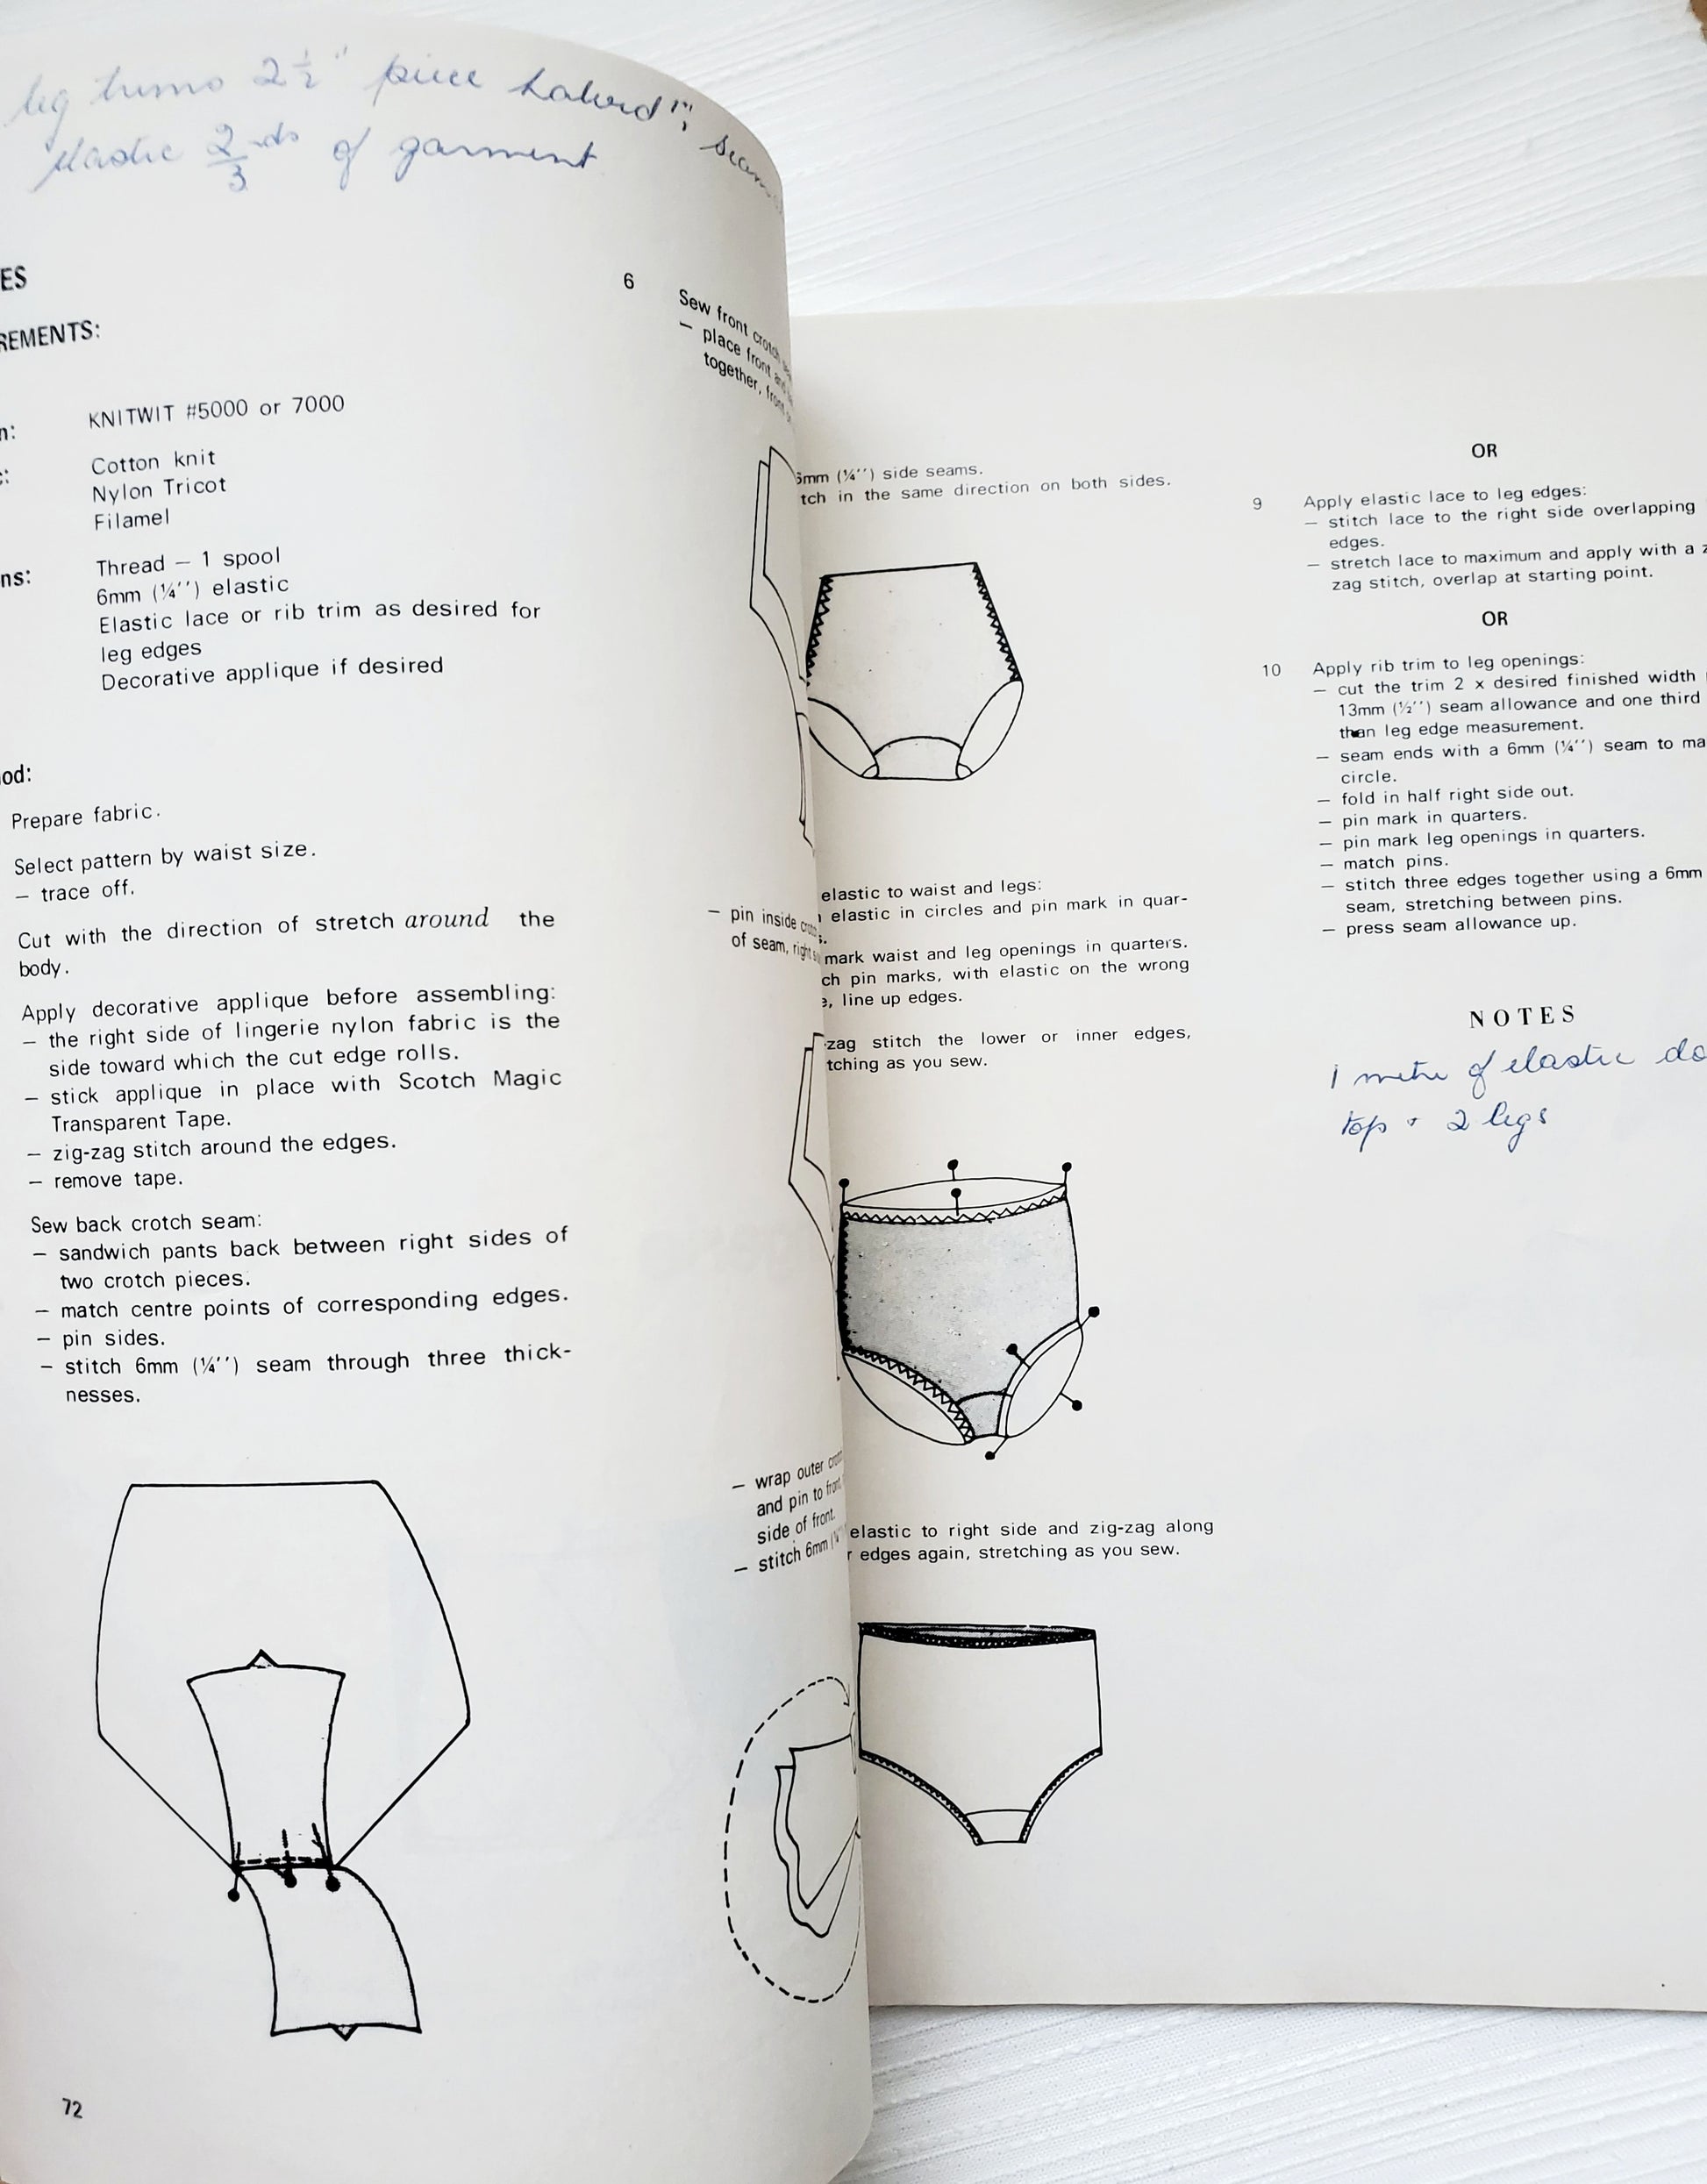 leg trims 2 ½" piece
elastic 2/3 rds of garment
ES
REMENTS:
n: KNITWIT #5000 or 7000
c: Cotton knit
Nylon Tricot
Filamel
ns: Thread — 1 spool
6mm (¼'') elastic
Elastic lace or rib trim as desired for
leg edges
Decorative applique if desired
od:
Prepare fabric.
Select pattern by waist size.
— trace off.
Cut with the direction of stretch around the
body.
Apply decorative applique before assembling:
— the right side of lingerie nylon fabric is the
side toward which the cut edge rolls.
— stick applique in place with Scotch Magic
Transparent Tape.
— zig-zag stitch around the edges.
— remove tape.
Sew back crotch seam:
— sandwich pants back between right sides of
two crotch pieces.
— match centre points of corresponding edges.
— pin sides.
— stitch 6mm (¼'') seam through three thick-
nesses.
72
6 Sew front crotch
— place front and
together,
— pin inside
of seam, right
— wrap outer
and pin to front,
side of front.
— stitch 6mm (¼''
6mm (¼'') side seams.
tch in the same direction on both sides.
elastic to waist and legs:
elastic in circles and pin mark in quar-
s.
mark waist and leg openings in quarters.
ch pin marks, with elastic on the wrong
e, line up edges.
zag stitch the lower or inner edges,
tching as you sew.
elastic to right side and zig-zag along
r edges again, stretching as you sew.
OR
9 Apply elastic lace to leg edges:
— stitch lace to the right side overlapping
edges.
— stretch lace to maximum and apply with a z
zag stitch, overlap at starting point.
OR
10 Apply rib trim to leg openings:
— cut the trim 2 x desired finished width
13mm (½'') seam allowance and one third
than leg edge measurement.
— seam ends with a 6mm (¼'') seam to ma
circle.
— fold in half right side out.
— pin mark in quarters.
— pin mark leg openings in quarters.
— match pins.
— stitch three edges together using a 6mm
seam, stretching between pins.
— press seam allowance up.
NOTES
1 metre of elastic do
top + 2 legs